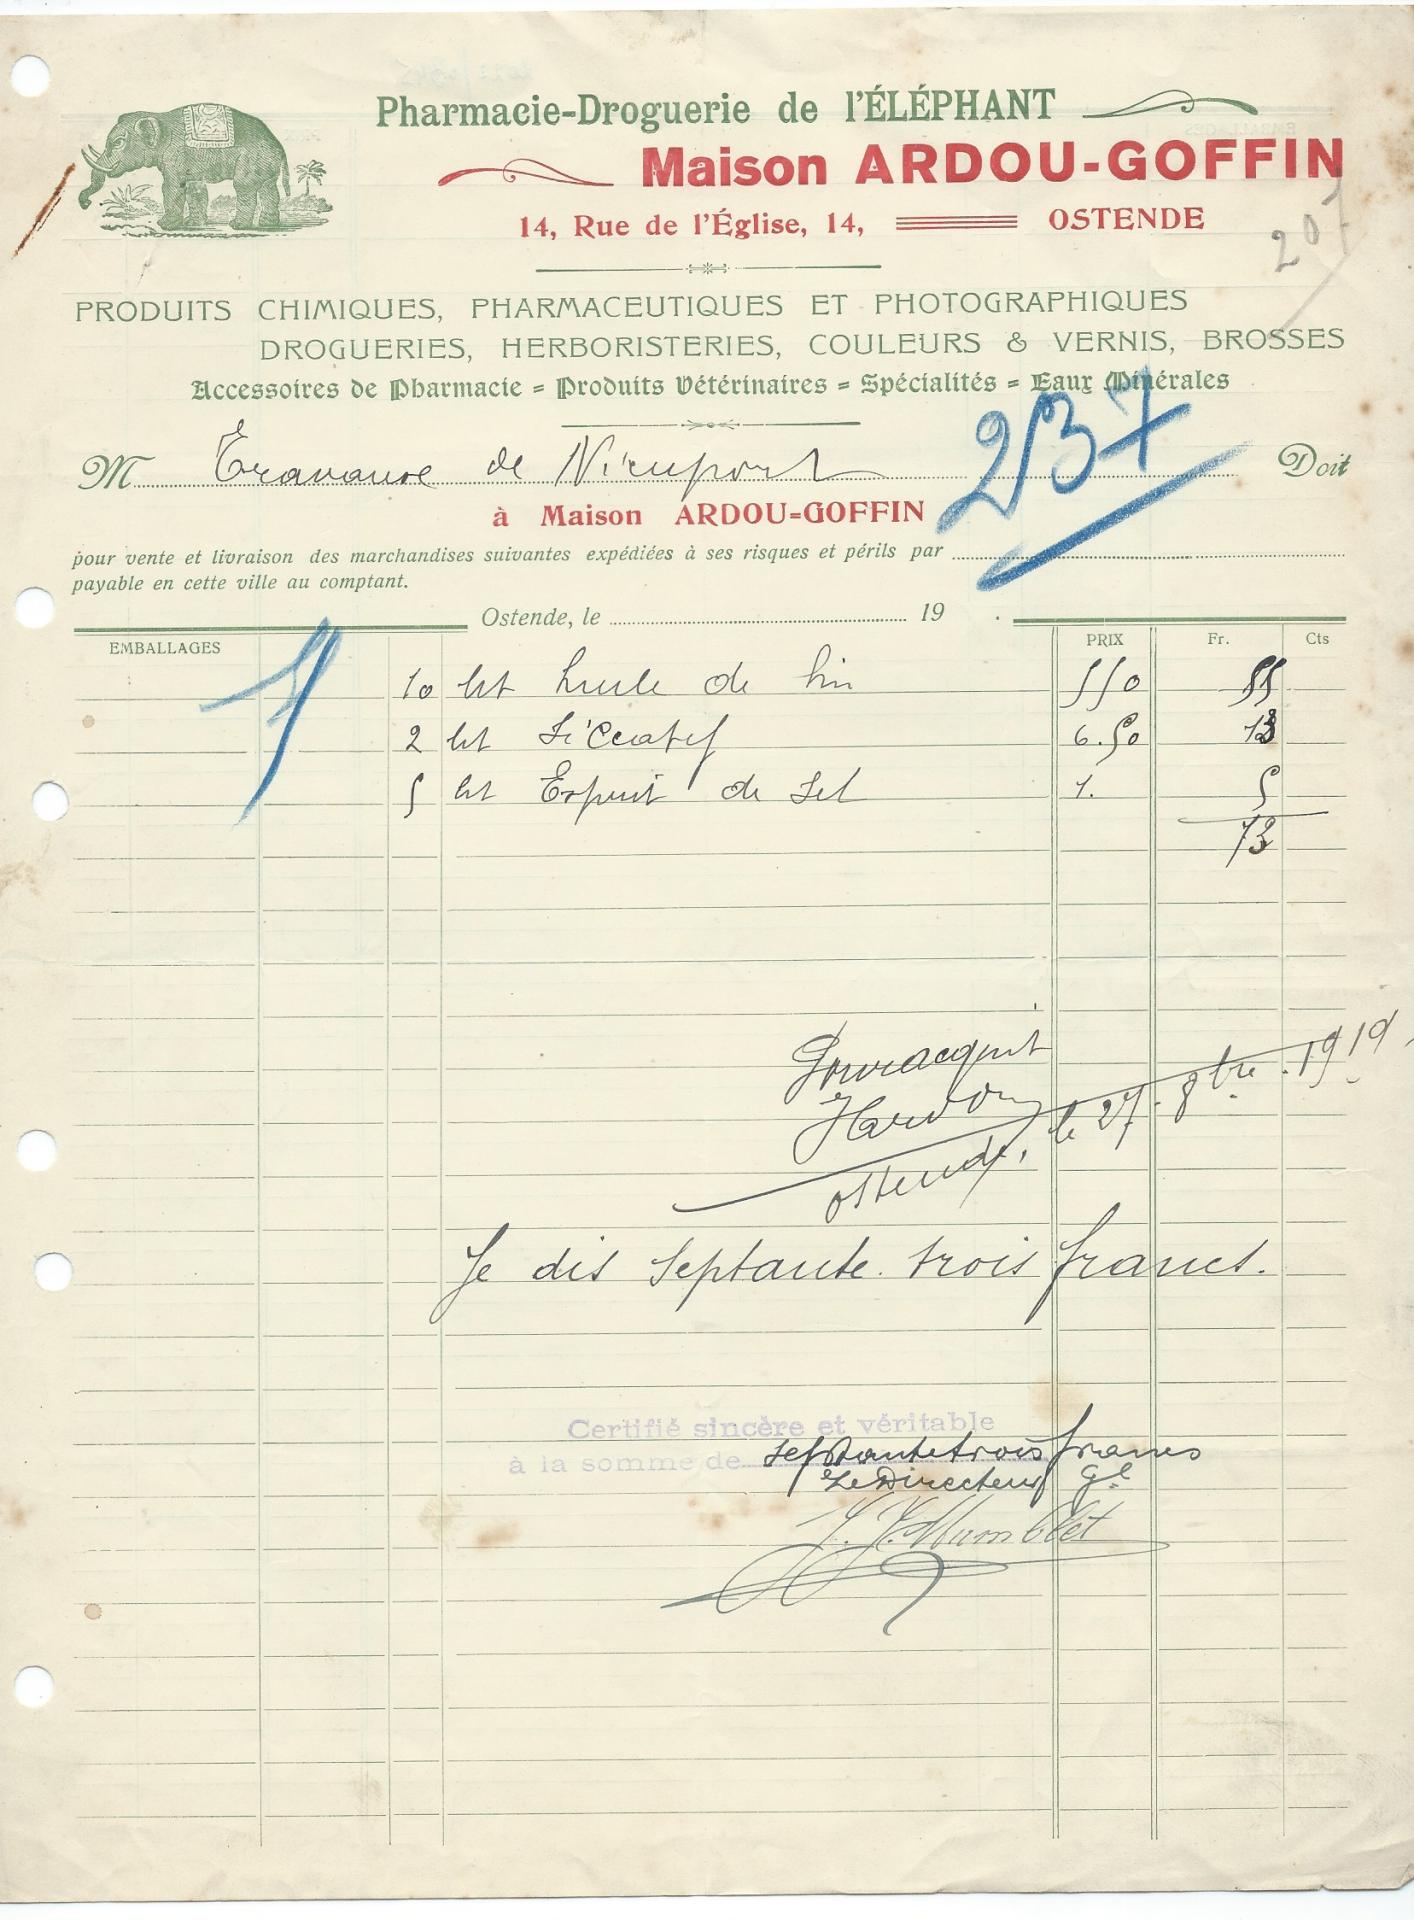 Pharmacie-Droguerie de l'ÉLÉPHANT
Maison ARDOU-GOFFIN
14, Rue de l'Église, 14, OSTENDE
207
PRODUITS CHIMIQUES, PHARMACEUTIQUES ET PHOTOGRAPHIQUES
DROGUERIES, HERBORISTERIES, COULEURS & VERNIS, BROSSES
Accessoires de Pharmacie = Produits Vétérinaires = Spécialités = Eaux Minérales
237
M Travaux de Nieuport Doit
à Maison ARDOU=GOFFIN
pour vente et livraison des marchandises suivantes expédiées à ses risques et périls par
payable en cette ville au comptant.
Ostende, le 19
EMBALLAGES PRIX Fr. Cts
1
10 lit huile de lin 550 55
2 lit Siccatif 6.50 13
5 lit Esprit de Sel 1. 5
73
Pour acquit
Ostende, le 27. 8bre. 1919.
Je dis Septante trois francs.
Certifié sincère et véritable
à la somme de septante trois francs
Le Directeur Gl
J. J. Humblet